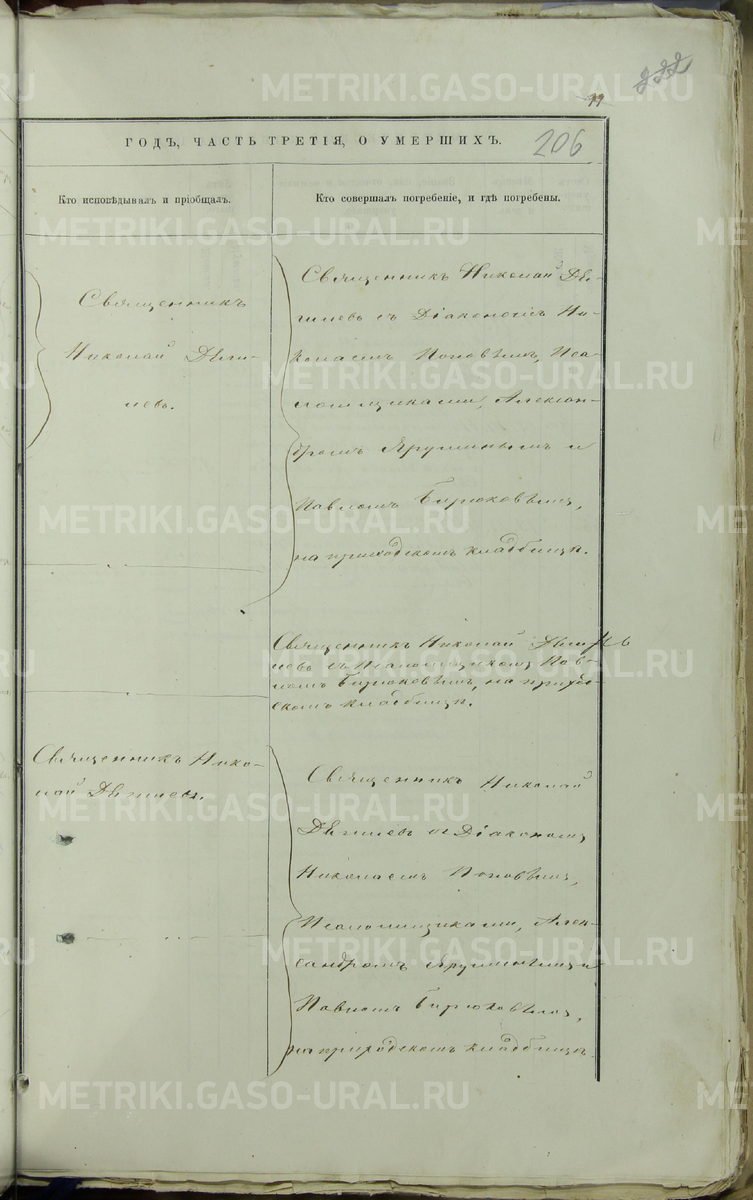 222
99
206
ГОДЪ, ЧАСТЬ ТРЕТІЯ, О УМЕРШИХЪ.
Кто исповѣдывалъ и пріобщалъ.
Кто совершалъ погребеніе, и гдѣ погребены.
Священникъ
Николай Дяги-
левъ.
Священникъ Николай Дя-
гилевъ съ Діакономъ Ни-
колаемъ Поповымъ, Пса-
ломщиками, Алексан-
дромъ Ярушинымъ и
Павломъ Бирюковымъ,
на приходскомъ кладбищѣ.
Священникъ Николай Дяги-
левъ съ Псаломщикомъ Пав-
ломъ Бирюковымъ, на приход-
скомъ кладбищѣ.
Священникъ Нико-
лай Дягилевъ.
Священникъ Николай
Дягилевъ съ Діакономъ
Николаемъ Поповымъ,
Псаломщиками, Алек-
сандромъ Ярушинымъ и
Павломъ Бирюковымъ,
на приходскомъ кладбищѣ.
METRIKI.GASO-URAL.RU